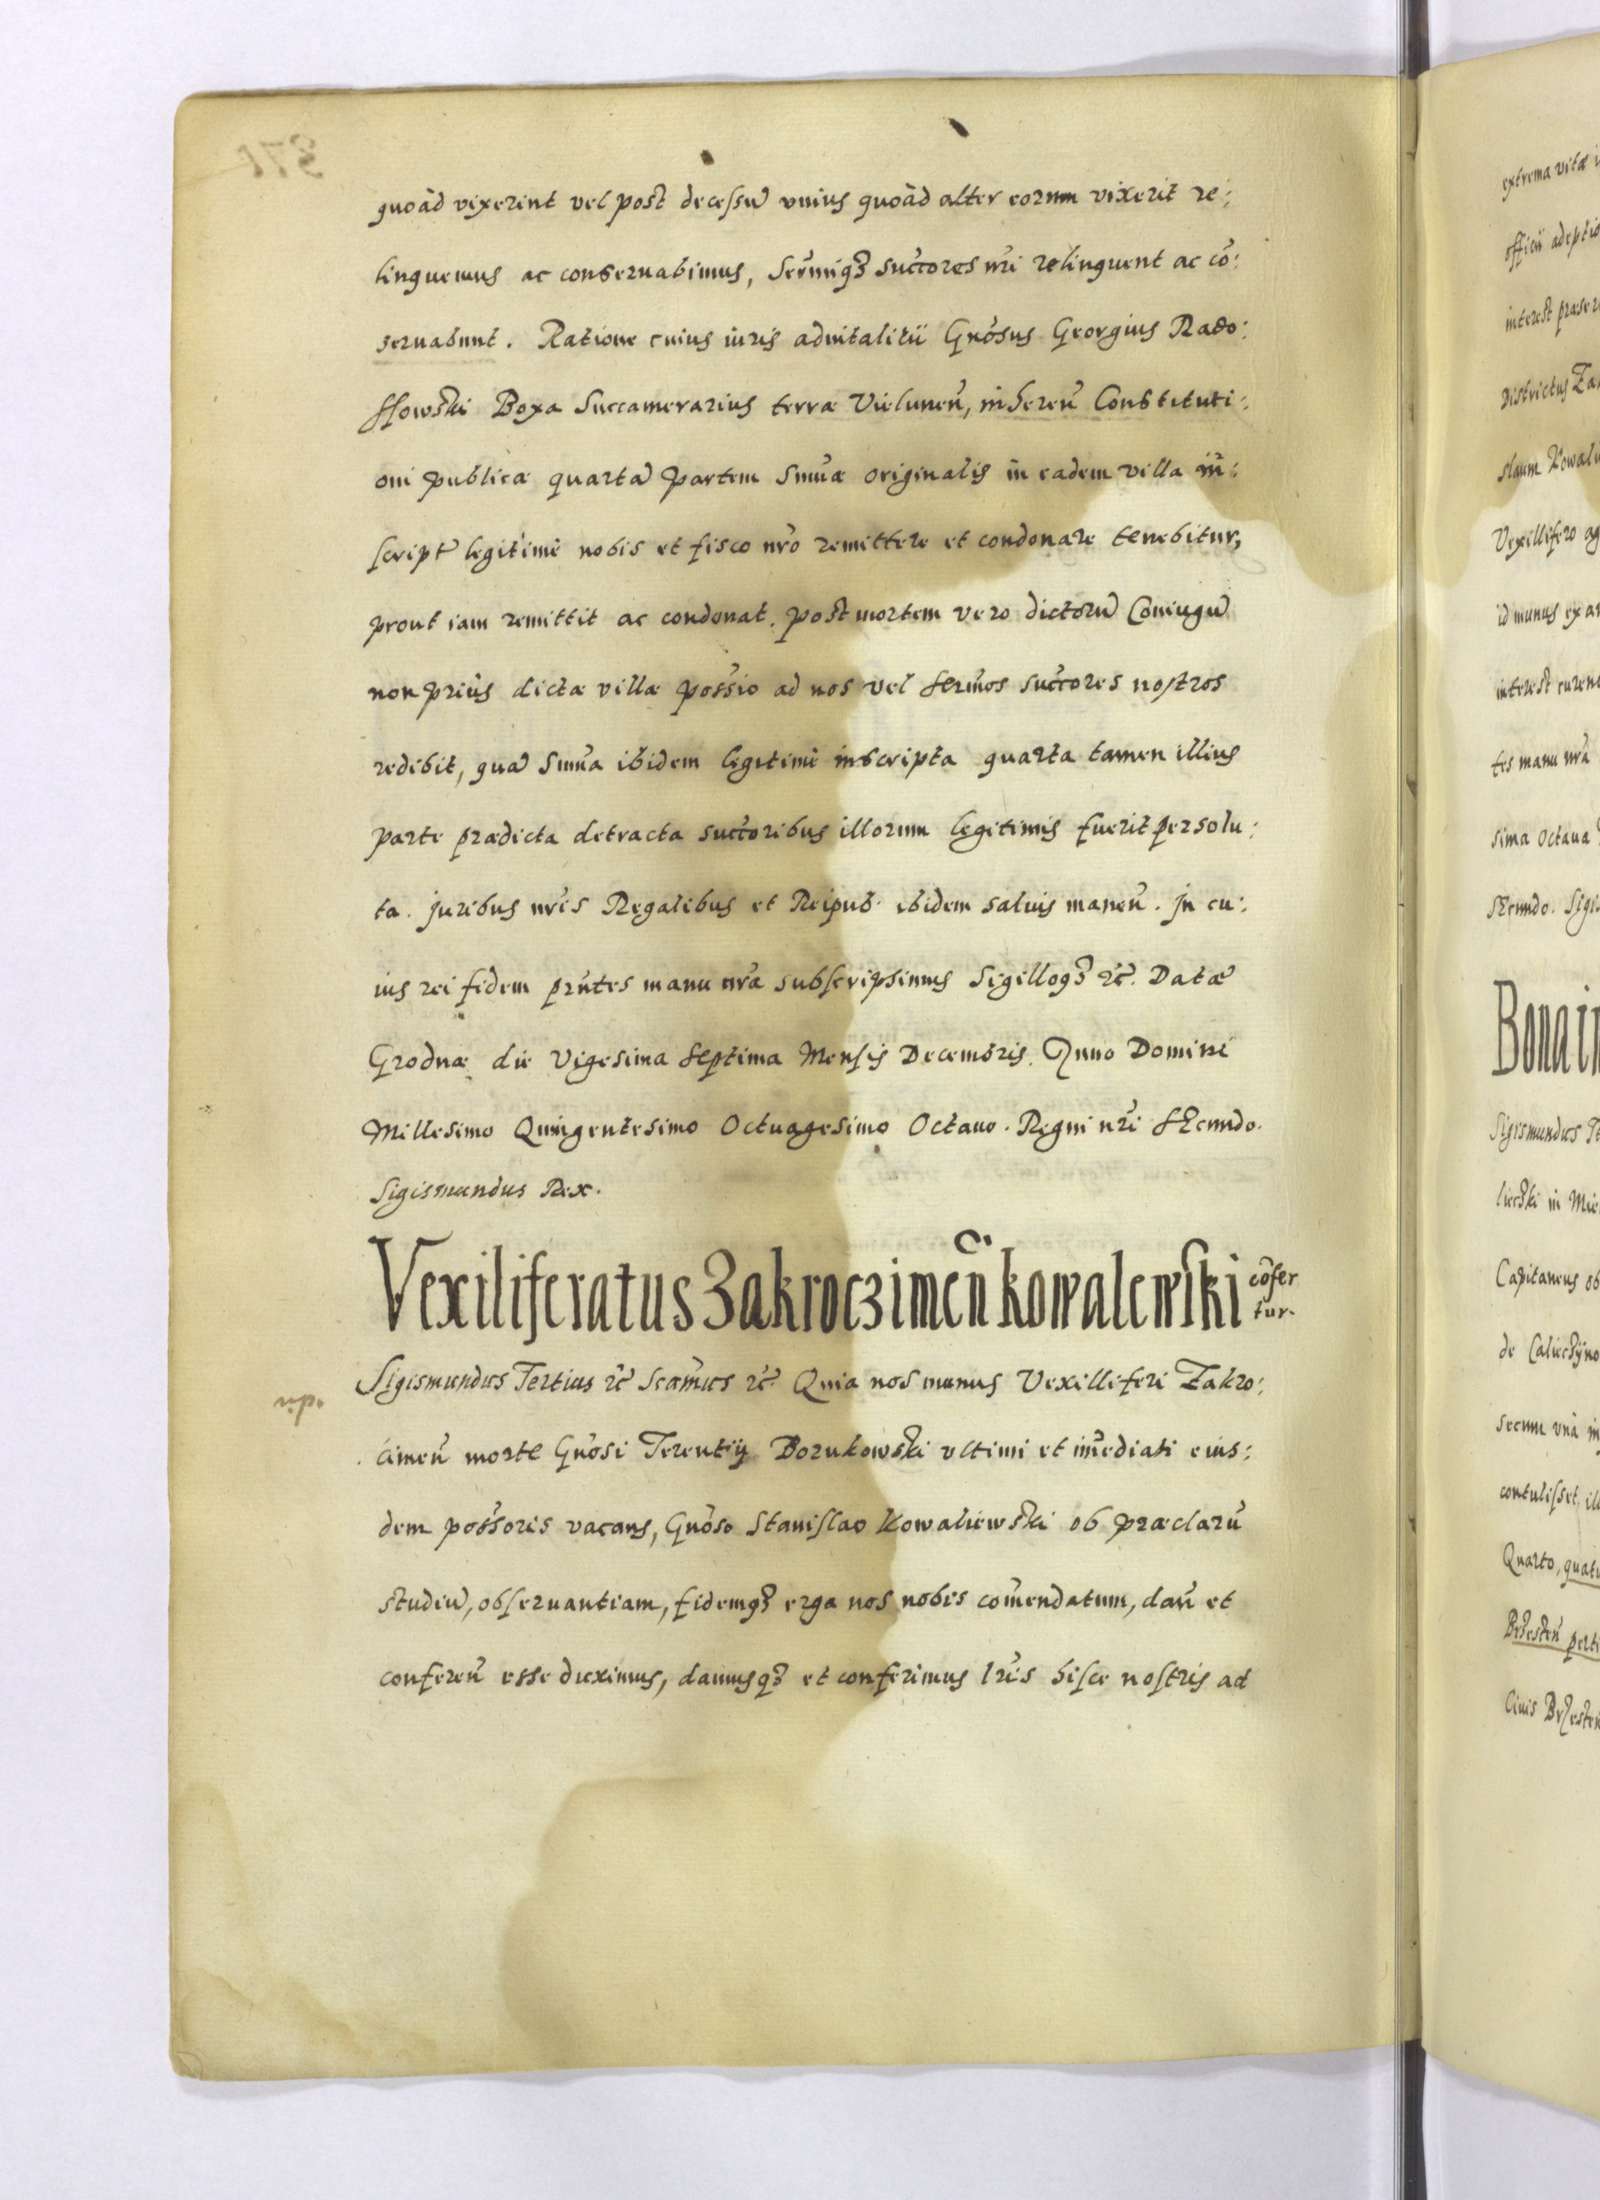 quoàd vixerint vel post decessũ unius quoàd alter eorum vixerit re:
linquemus ac conservabimus, Serm̃iq3 succ̃ores nr̃i relinquent ac cõ:
servabunt. Ratione cuius iuris advitalitii Gñosus Georgius Rado:
ssowski Boxa Succamerarius terræ Vielunen̄, inheren̄ Constituti:
oni publicæ quartã partem Sum̃æ originalis in eadem villa in:
script̃ legitimè nobis et fisco nr̃o remittere et condonare tenebitur,
prout iam remittit ac condonat. Post mortem vero dictorũ Coniugũ
non priùs dictæ villæ poss̃io ad nos vel serm̃os succ̃ores nostros
redibit, quã Sum̃a ibidem legitimè inscripta quarta tamen illius
parte prædicta detracta succ̃oribus illorum legitimis fuerit persolu:
ta. Juribus nr̃is Regalibus et Reipub. ibidem salvis manen̄. In cu:
ius rei fidem pr̃ntes manu nr̃a subscripsimus Sigilloq3 etc̃. Datæ
Grodnæ die Vigesima Septima Mensis Decembris. Anno Domini
Millesimo Quingentesimo Octuagesimo Octavo. Regni nr̃i Secundo.
Sigismundus Rex.
Vexiliferatus Zakroczimen̄ Kowalewski cõfer
tur.
Sigismundus Tertius etc̃ Scam̃us etc̃ Quia nos munus Vexilliferi Zakro:
cimen̄ morte Gñosi Terentij Borukowski ultimi et im̃ediati eius:
dem poss̃oris vacans, Gñoso Stanislao Kowaliewski ob præclarũ
studiũ, observantiam, fidemq3 erga nos nobis com̃endatum, dan̄ et
conferen̄ esse duximus, damusq3 et conferimus lr̃is hisce nostris ad
extrema vitæ
officii adeptio
interest præser
Districtus Za
slaum Kowal
Vexillifero ag
id munus ex a
interest curen
tes manu nr̃a
sima Octava
Secundo. Sigis
Bona i
Sigismundus Te
liecski in Mie
Capitaneus ob
secum unà in
contulisset, il
Quarto, quat